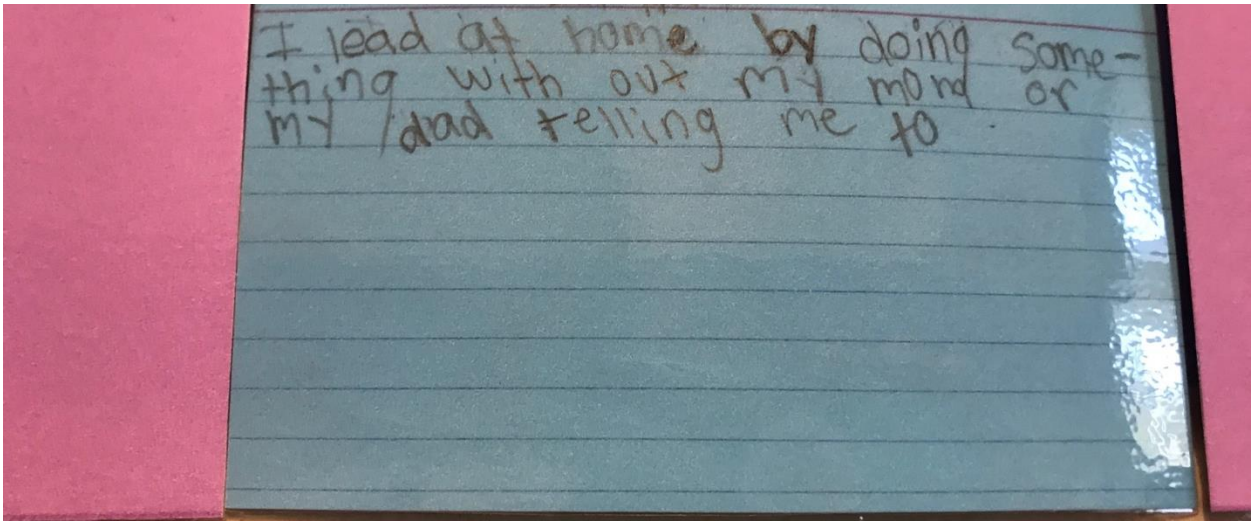 I lead at home by doing some-
thing with out my mom or
my dad telling me to.